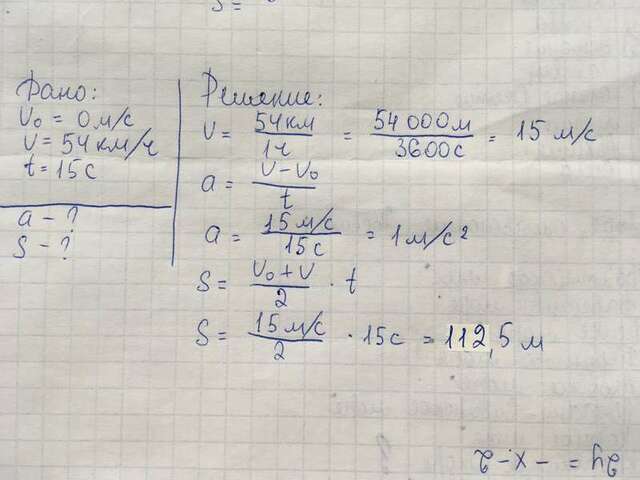 S =
Дано:
V₀ = 0 м/с
V = 54 км/ч
t = 15 с
a - ?
S - ?
Решение:
V = 54 км / 1 ч = 54 000 м / 3600 с = 15 м/с
a = V - V₀ / t
a = 15 м/с / 15 с = 1 м/с²
S = V₀ + V / 2 · t
S = 15 м/с / 2 · 15 с = 112,5 м
2y = - x - 2